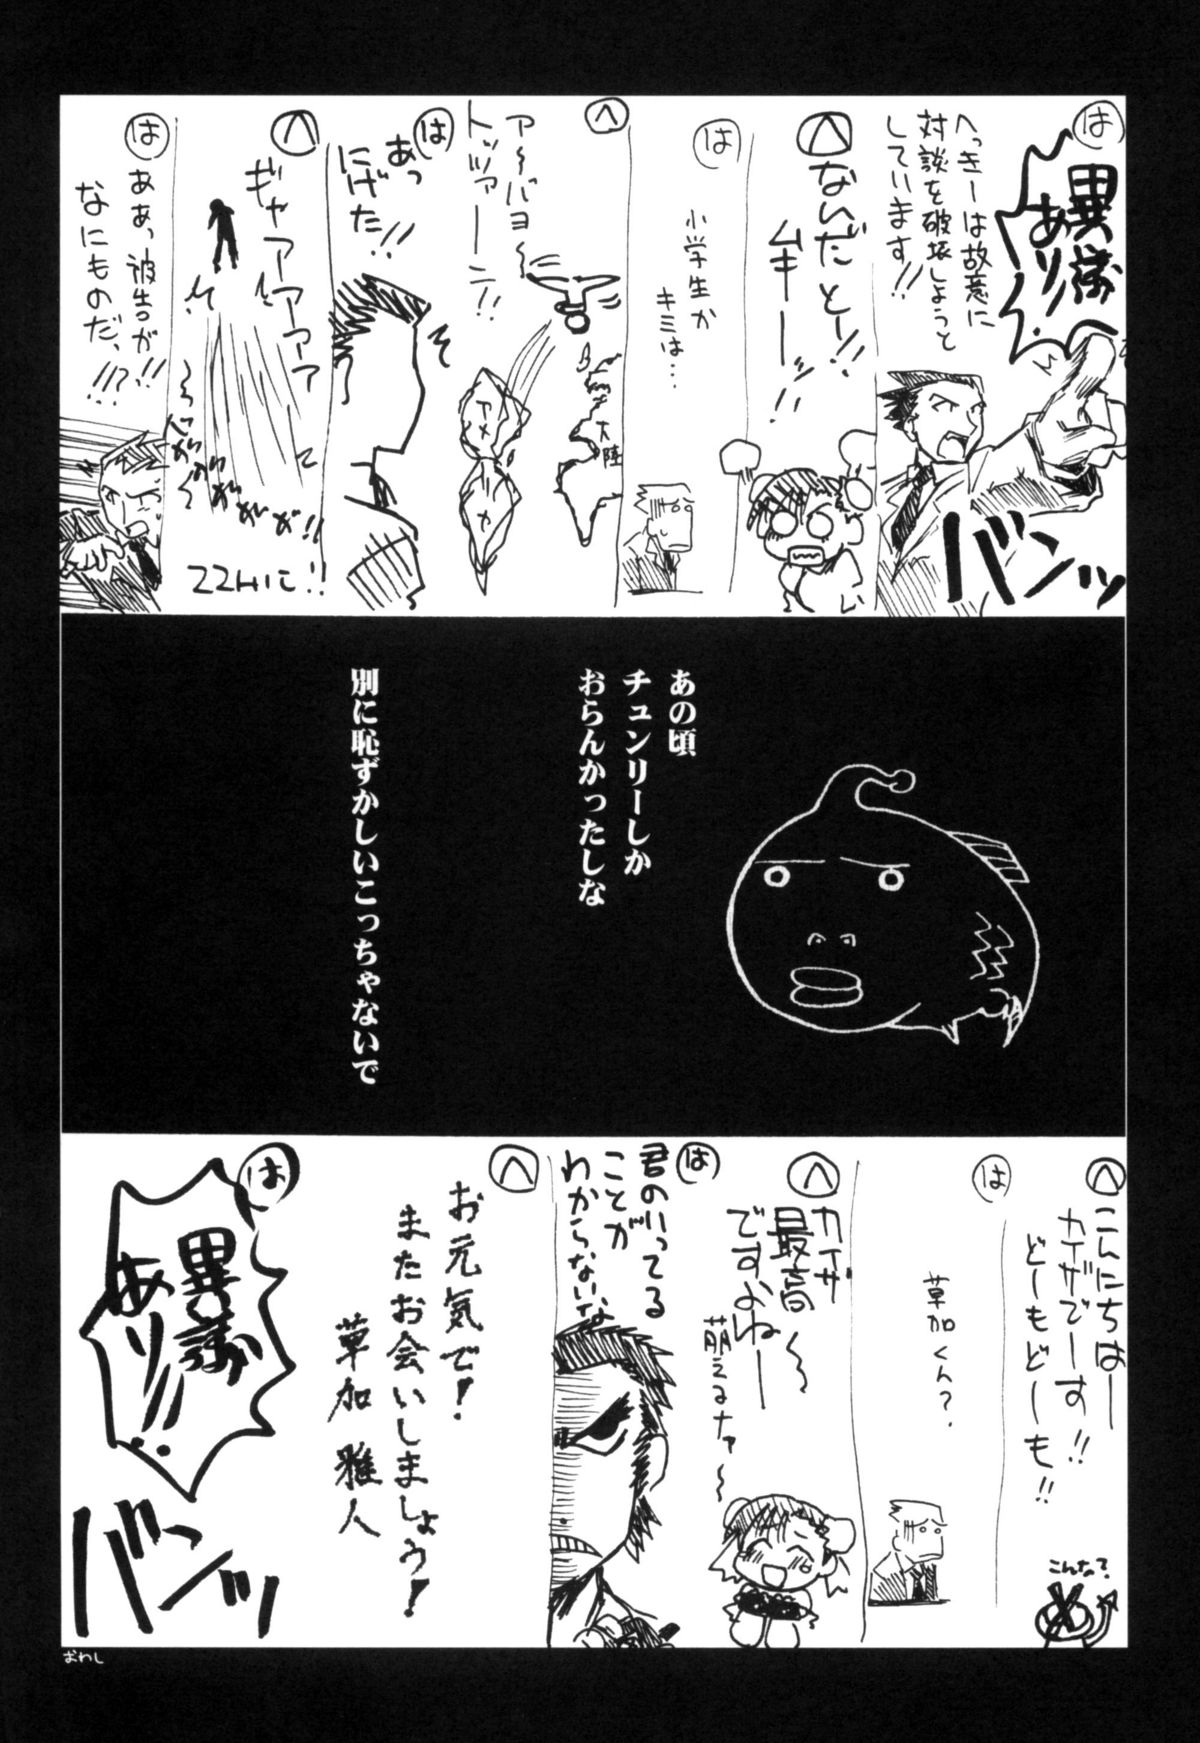 は
異議
あり!!
へっきーは故意に
対談を破壊しようと
しています!!
バンッ
へ
ないだとー!!
ムキーーッ!!
は
小学生か
キミは…
へ
ア〜バヨ〜
トッツァーーン!!
大陸
アメ
は
あっ
にげた!!
へ
ギャアアアアア
ZZHIに!!
は
ああ、被告が!!
なにものだっ!!?
あの頃
チュンリーしか
おらんかったしな
別に恥ずかしいこっちゃないで
へ
こんにちはー
カイザでーす!!
どーもどーも!!
こんなで?
は
草加くん?
へ
カイザ
最高〜
ですよねー
萌えるナァ〜
は
君のいってる
ことが
わからないな
へ
お元気で!
またお会いしましょう!
草加 雅人
は
異議
あり!!
バンッ
おわし